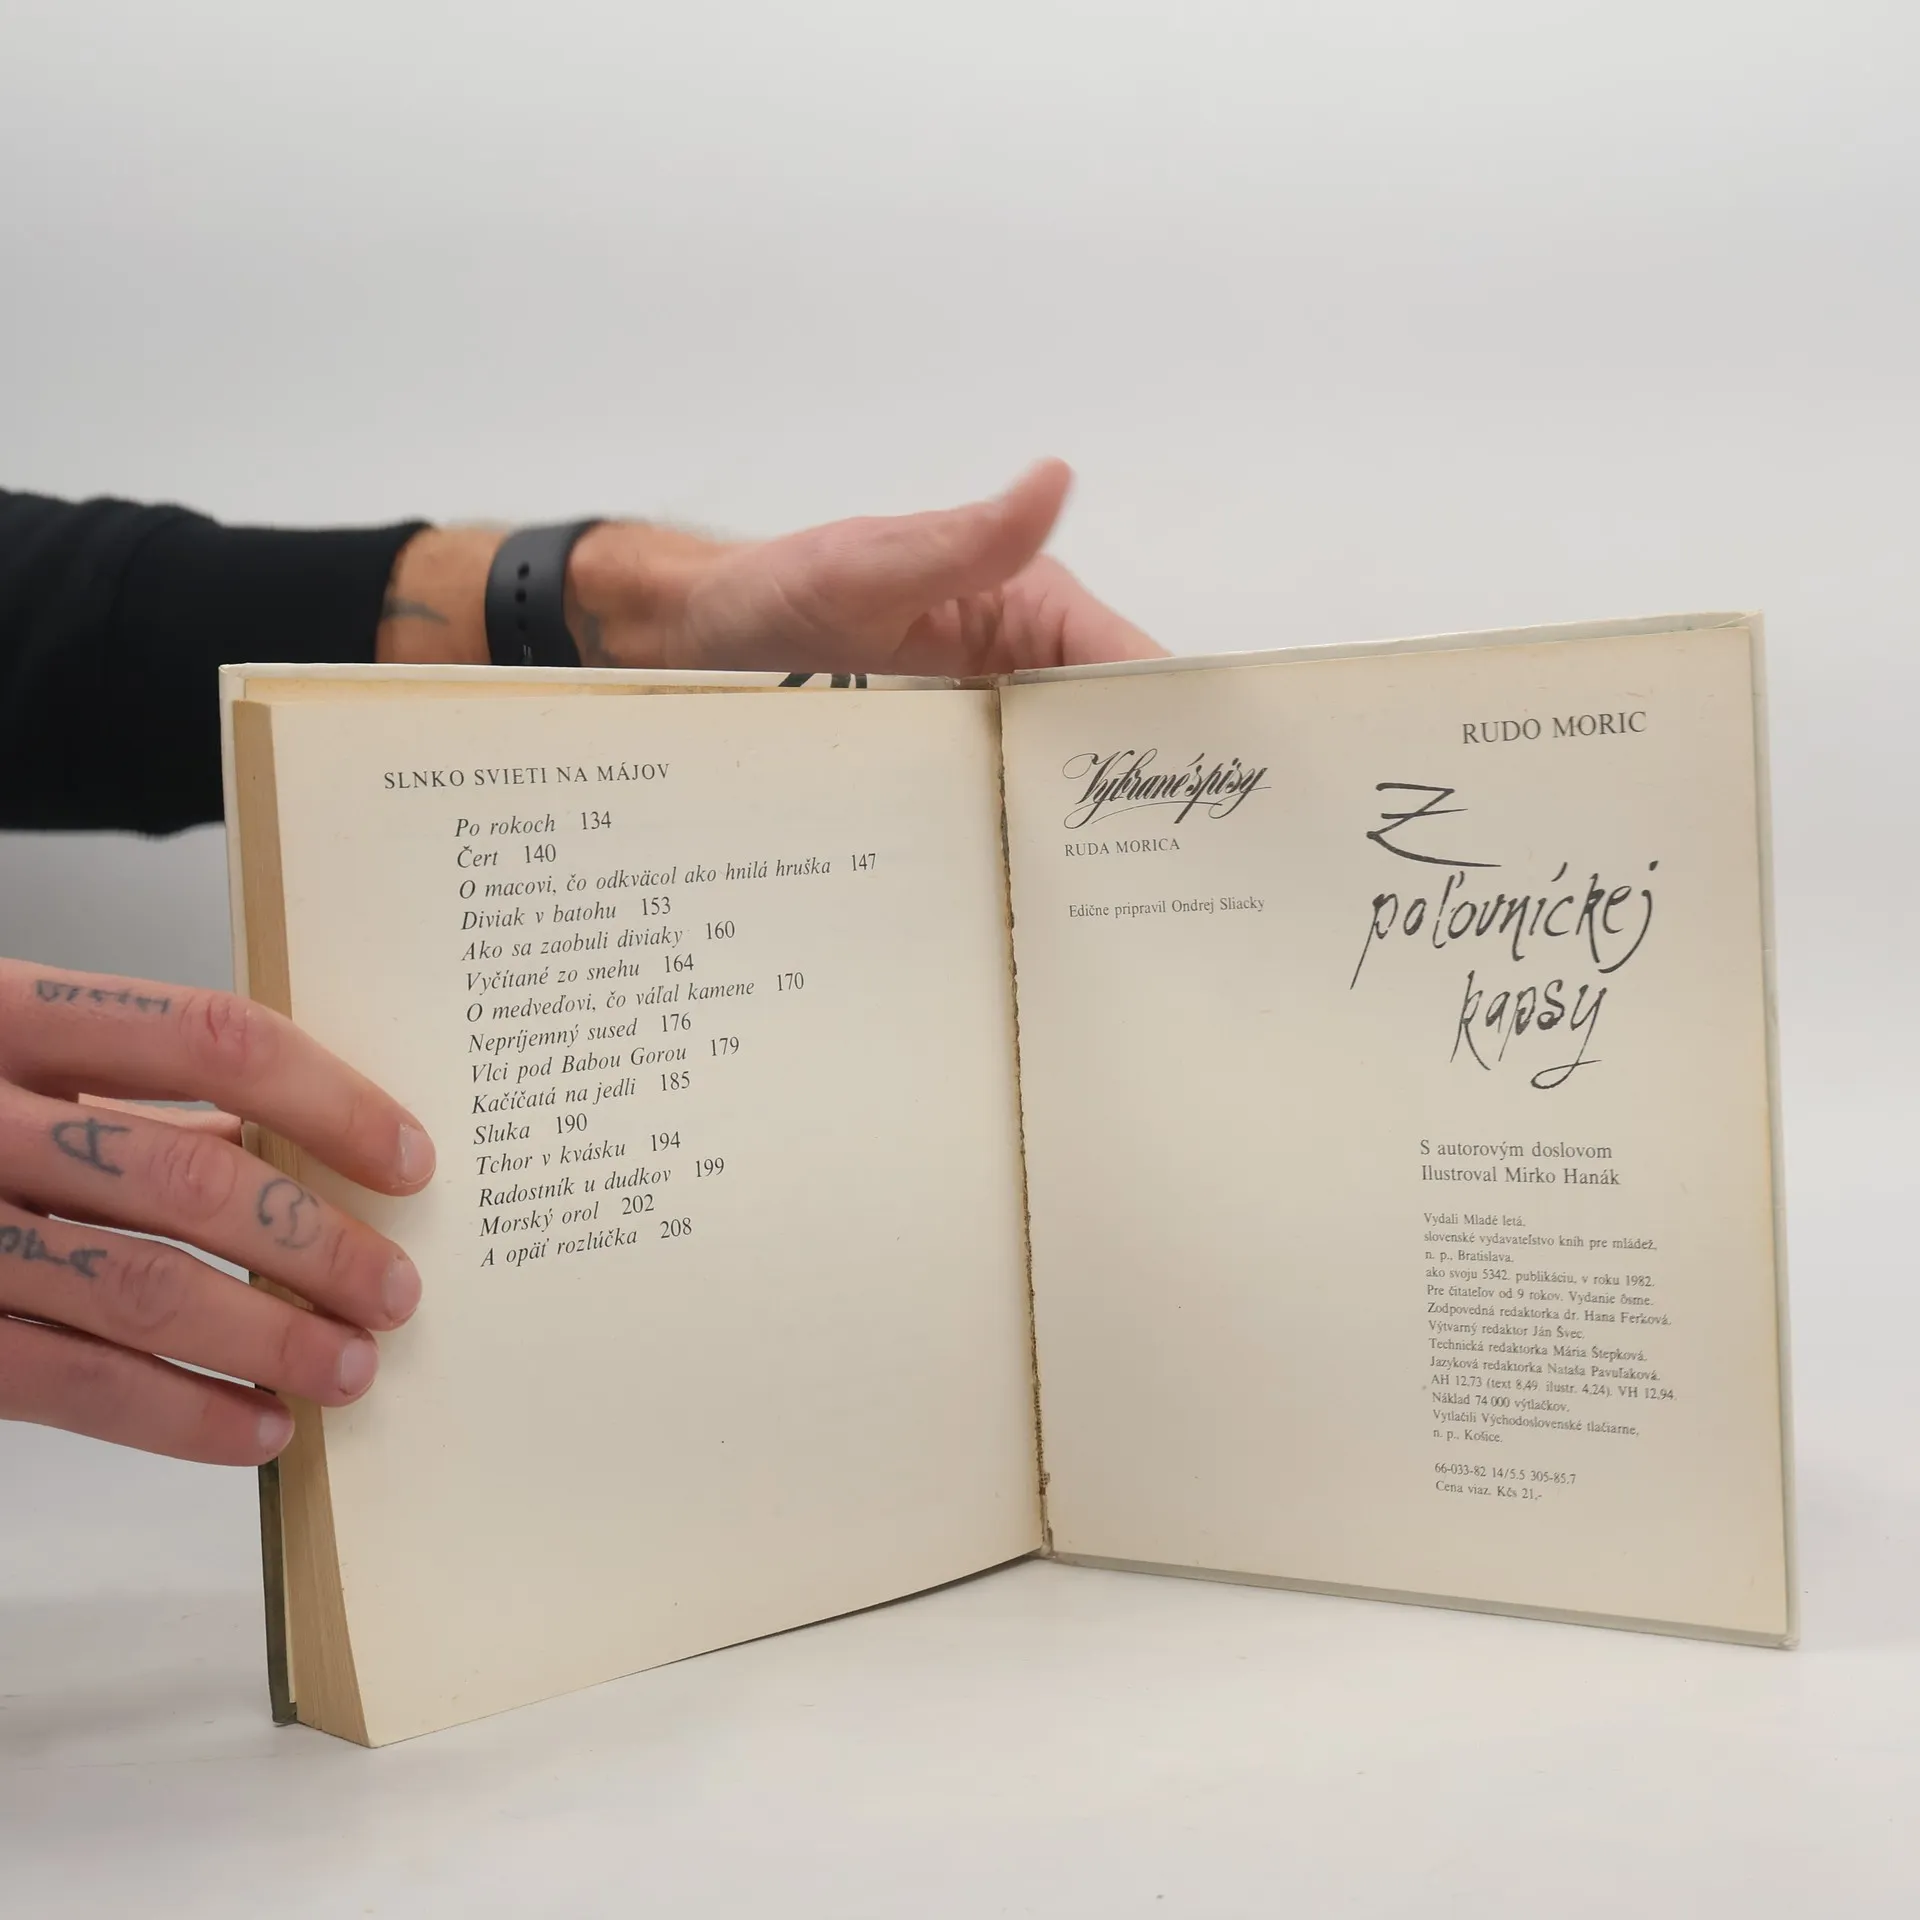 SLNKO SVIETI NA MÁJOV
Po rokoch 134
Čert 140
O macovi, čo odkväcol ako hnilá hruška 147
Diviak v batohu 153
Ako sa zaobuli diviaky 160
Vyčítané zo snehu 164
O medveďovi, čo váľal kamene 170
Nepríjemný sused 176
Vlci pod Babou Gorou 179
Kačíčatá na jedli 185
Sluka 190
Tchor v kvásku 194
Radostník u dudkov 199
Morský orol 202
A opäť rozlúčka 208
Vybrané spisy
RUDA MORICA
Edične pripravil Ondrej Sliacky
RUDO MORIC
Z
poľovníckej
kapsy
S autorovým doslovom
Ilustroval Mirko Hanák
Vydali Mladé letá,
slovenské vydavateľstvo kníh pre mládež,
n. p., Bratislava,
ako svoju 5342. publikáciu, v roku 1982.
Pre čitateľov od 9 rokov. Vydanie ôsme.
Zodpovedná redaktorka dr. Hana Ferková.
Výtvarný redaktor Ján Švec.
Technická redaktorka Mária Štepková.
Jazyková redaktorka Nataša Pavuľaková.
AH 12,73 (text 8,49 ilustr. 4,24). VH 12,94.
Náklad 74 000 výtlačkov.
Vytlačili Východoslovenské tlačiarne,
n. p., Košice.
66-033-82 14/5.5 305-85.7
Cena viaz. Kčs 21,-